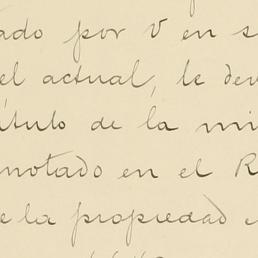 ado por V en s
el actual, le dev
ítulo de la mi
notado en el R
e la propiedad e